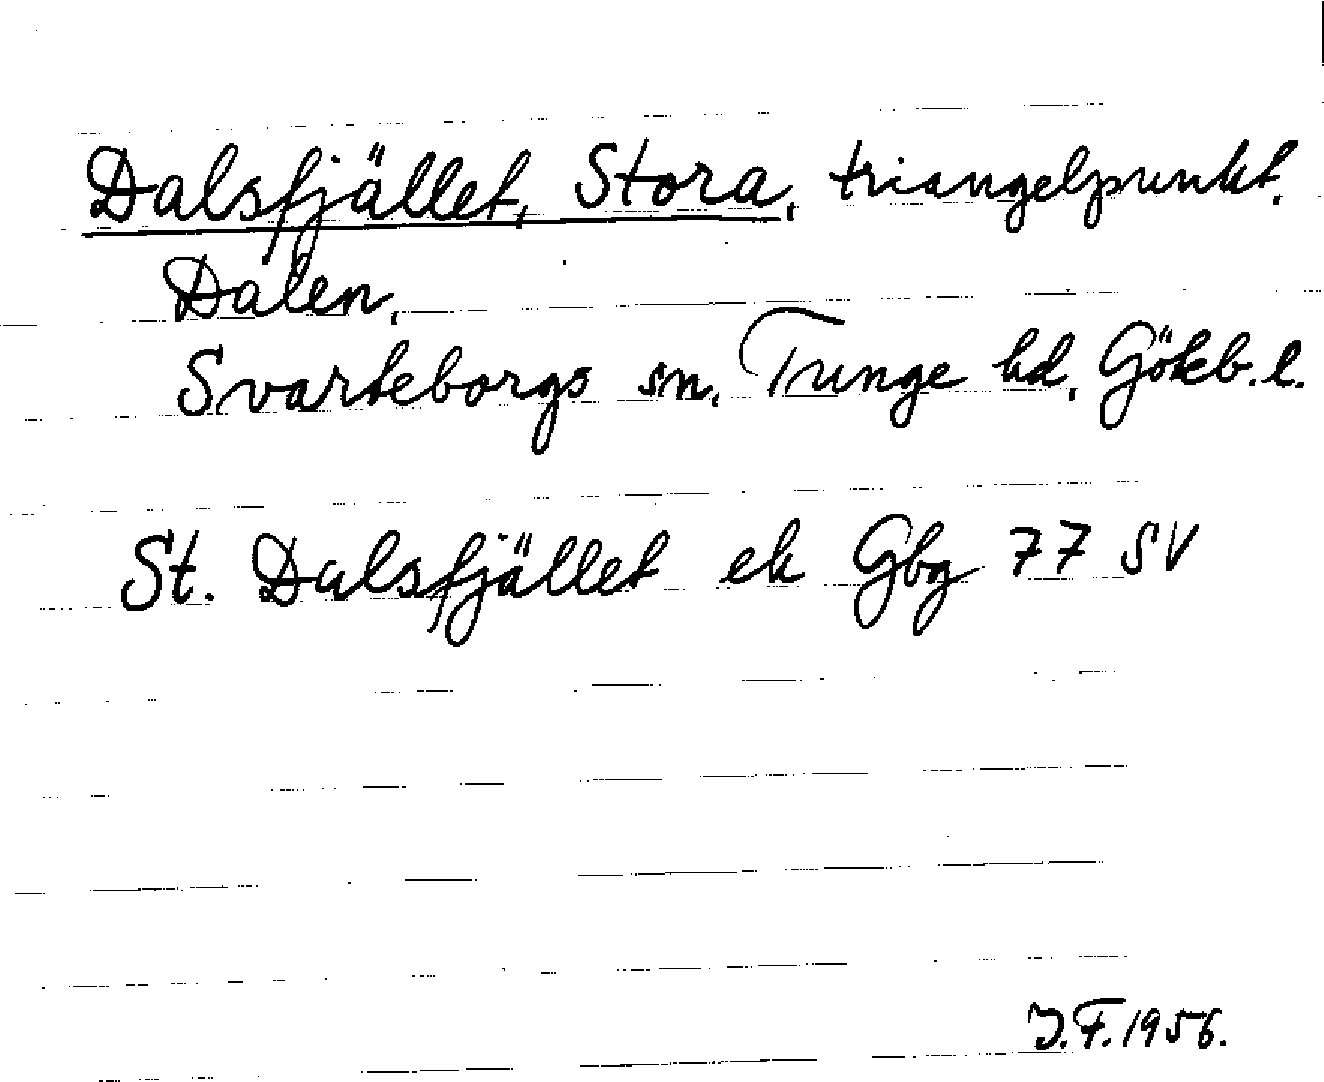 Dalsfjället, Stora, triangelpunkt.
Dalen,
Svarteborgs sn, Tunge hd, Gökb. l.
St. Dalsfjället ek Gbg 77 SV
J.F. 1956.